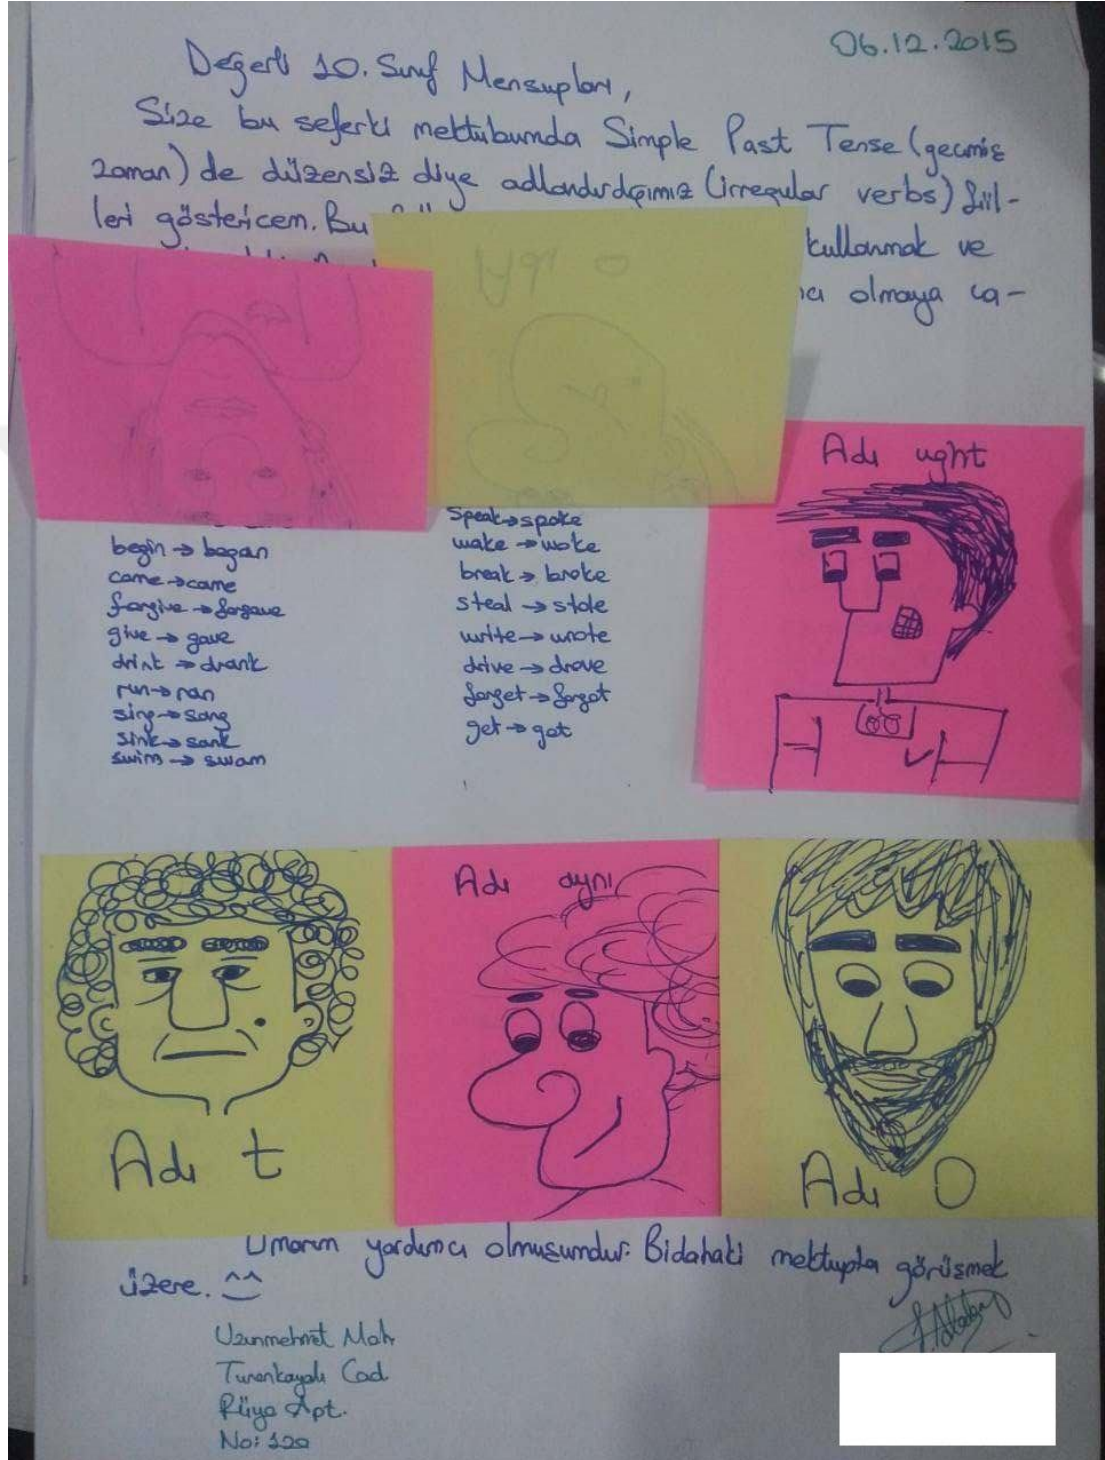 06.12.2015
Değerli 10. Sınıf Mensupları,
Size bu seferki mektubumda Simple Past Tense (geçmiş
zaman) de düzensiz diye adlandırdığımız (irregular verbs) fiil-
leri göstericem. Bu
kullanmak ve
olmaya ça-
Adı ught
begin → began
come → came
forgive → forgave
give → gave
drink → drank
run → ran
sing → sang
sink → sank
swim → swam
Speak → spoke
wake → woke
break → broke
steal → stole
write → wrote
drive → drove
forget → forgot
get → got
Adı t
Adı aynı
Adı O
Umarım yardımcı olmuşumdur. Bidahaki mektupta görüşmek
üzere. ^^
Uzunmehmet Mah
Turankayalı Cad
Rüya Apt.
No: 120